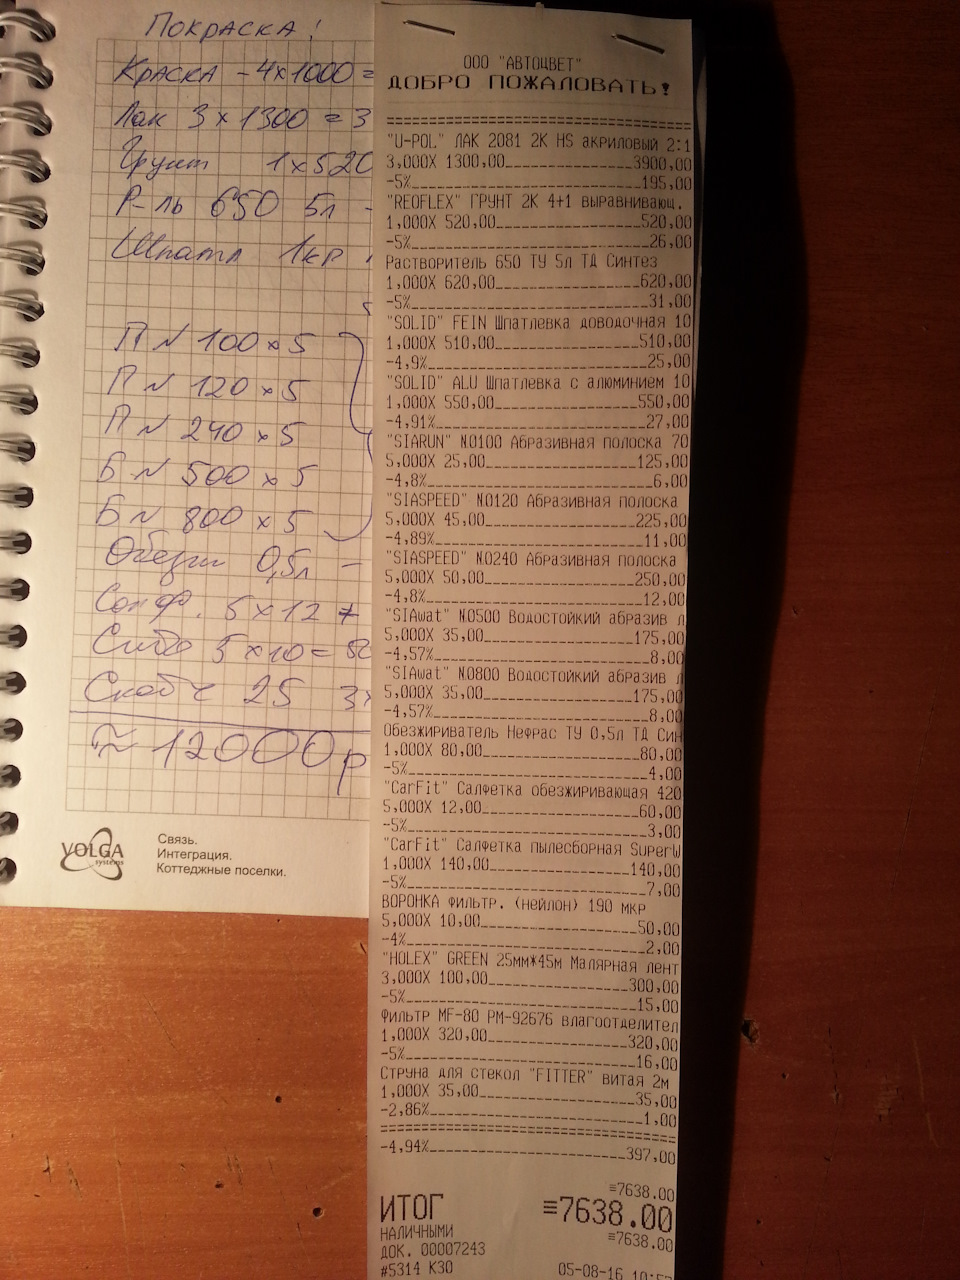 Покраска!
Краска - 4х1000 =
Лак 3 х 1300 = 3
Грунт 1 х 520
Р-ль 650 5л -
Шпатл 1кр
П № 100 х 5
П № 120 х 5
П № 240 х 5
Б № 500 х 5
Б № 800 х 5
Обезж 0,5л -
Салф. 5 х 12 +
Сито 5 х 10 = 50
Скотч 25 3х
≈ 12000р
VOLGA
systems
Связь.
Интеграция.
Коттеджные поселки.
ООО "АВТОЦВЕТ"
ДОБРО ПОЖАЛОВАТЬ!
"U-POL" ЛАК 2081 2K HS акриловый 2:1
3,000X 1300,00 3900,00
-5% 195,00
"REOFLEX" ГРУНТ 2К 4+1 выравнивающ.
1,000X 520,00 520,00
-5% 26,00
Растворитель 650 ТУ 5л ТД Синтез
1,000X 620,00 620,00
-5% 31,00
"SOLID" FEIN Шпатлевка доводочная 10
1,000X 510,00 510,00
-4,9% 25,00
"SOLID" ALU Шпатлевка с алюминием 10
1,000X 550,00 550,00
-4,91% 27,00
"SIARUN" N.0100 Абразивная полоска 70
5,000X 25,00 125,00
-4,8% 6,00
"SIASPEED" N.0120 Абразивная полоска
5,000X 45,00 225,00
-4,89% 11,00
"SIASPEED" N.0240 Абразивная полоска
5,000X 50,00 250,00
-4,8% 12,00
"SIAwat" N.0500 Водостойкий абразив л
5,000X 35,00 175,00
-4,57% 8,00
"SIAwat" N.0800 Водостойкий абразив л
5,000X 35,00 175,00
-4,57% 8,00
Обезжириватель Нефрас ТУ 0,5л ТД Син
1,000X 80,00 80,00
-5% 4,00
"CarFit" Салфетка обезжиривающая 420
5,000X 12,00 60,00
-5% 3,00
"CarFit" Салфетка пылесборная SuperW
1,000X 140,00 140,00
-5% 7,00
ВОРОНКА фильтр. (нейлон) 190 мкр
5,000X 10,00 50,00
-4% 2,00
"HOLEX" GREEN 25мм*45м Малярная лент
3,000X 100,00 300,00
-5% 15,00
Фильтр MF-80 РМ-92676 влагоотделител
1,000X 320,00 320,00
-5% 16,00
Струна для стекол "FITTER" витая 2м
1,000X 35,00 35,00
-2,86% 1,00
-4,94% 397,00
≡7638.00
ИТОГ ≡7638.00
НАЛИЧНЫМИ ≡7638.00
ДОК. 00007243
#5314 К30 05-08-16